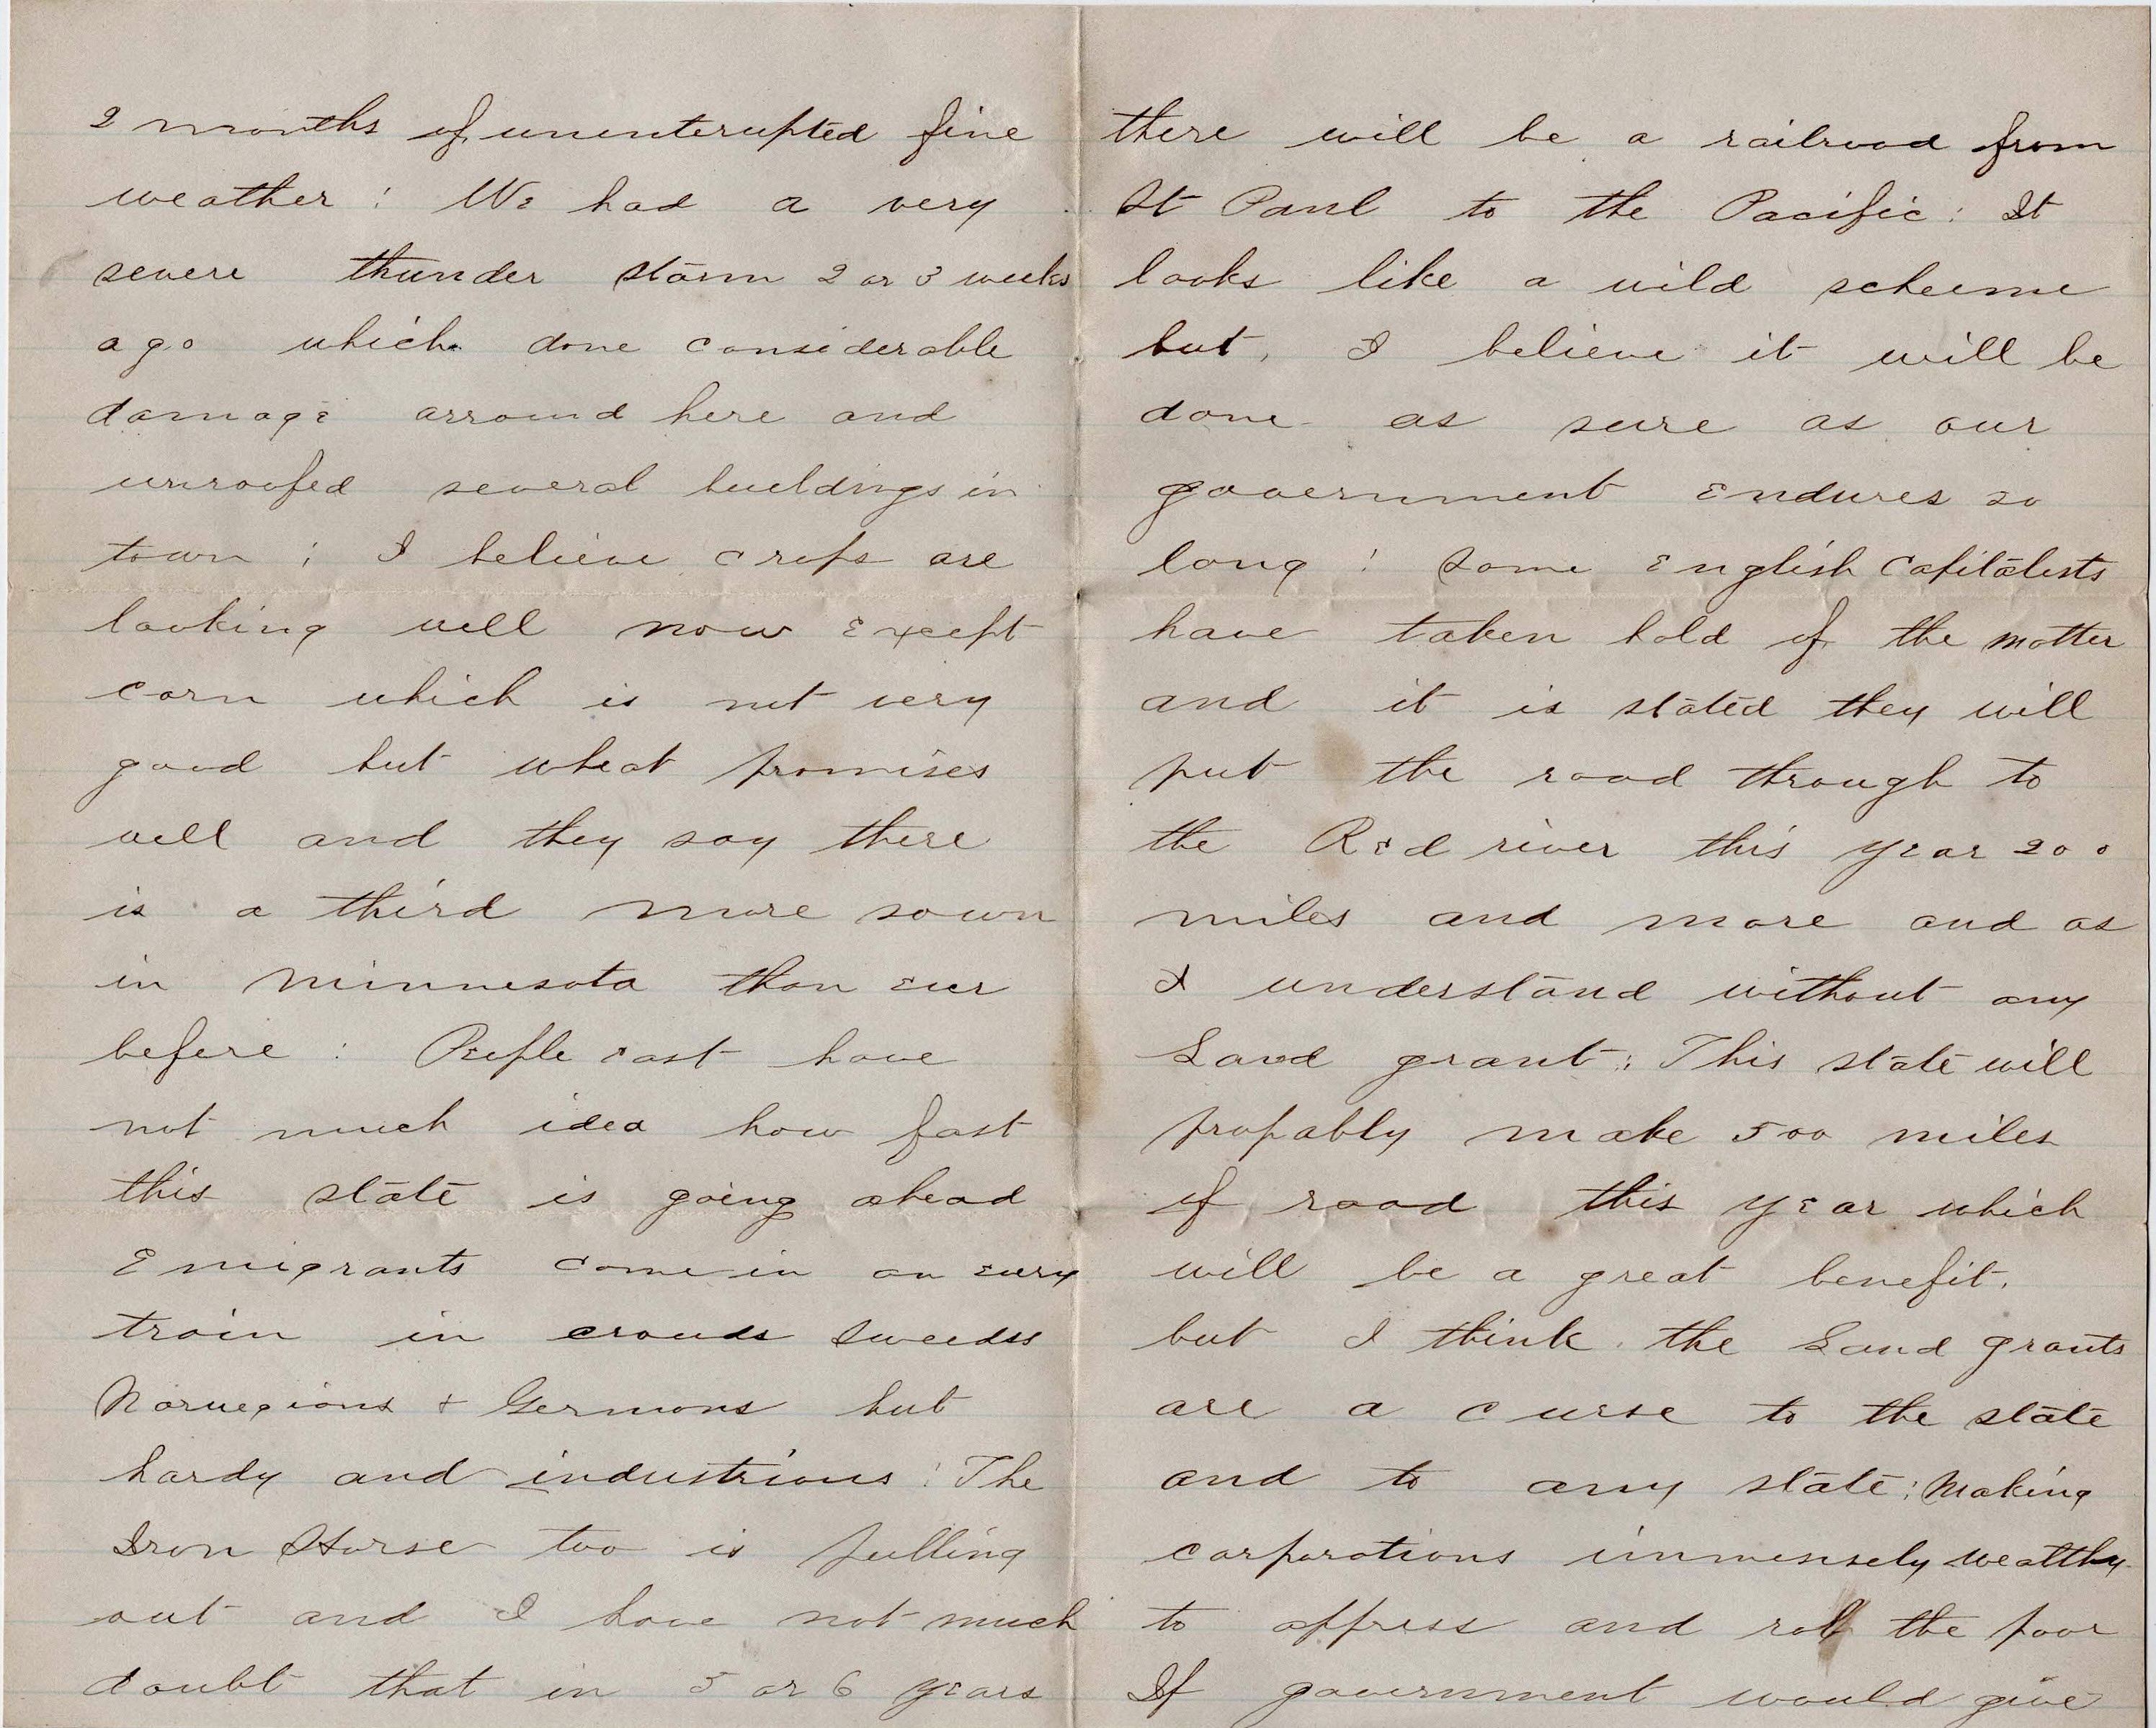 2 months of uninterupted fine
weather : We had a very
severe thunder storm 2 or 3 weeks
ago which done considerable
damage arround here and
unroofed several buildings in
town ; I believe crops are
looking well now except
corn which is not very
good but wheat promises
well and they say there
is a third more sown
in Minnesota than ever
before : People east have
not much idea how fast
this state is going ahead
Emigrants come in on every
train in crowds Sweedes
Norwegians + Germans but
hardy and industrious : The
Iron Horse too is pulling
out and I have not much
doubt that in 5 or 6 years
there will be a railroad from
St Paul to the Pacific : It
looks like a wild scheeme
but I believe it will be
done as sure as our
government endures so
long : Some English Capitalists
have taken hold of the matter
and it is stated they will
put the road through to
the Red river this year 200
miles and more and as
I understand without any
Land grant : This state will
propably make 500 miles
of road this year which
will be a great benefit.
but I think the Land grants
are a curse to the state
and to any state : Making
corporations immensely wealthy
to oppress and rob the poor
If government would give